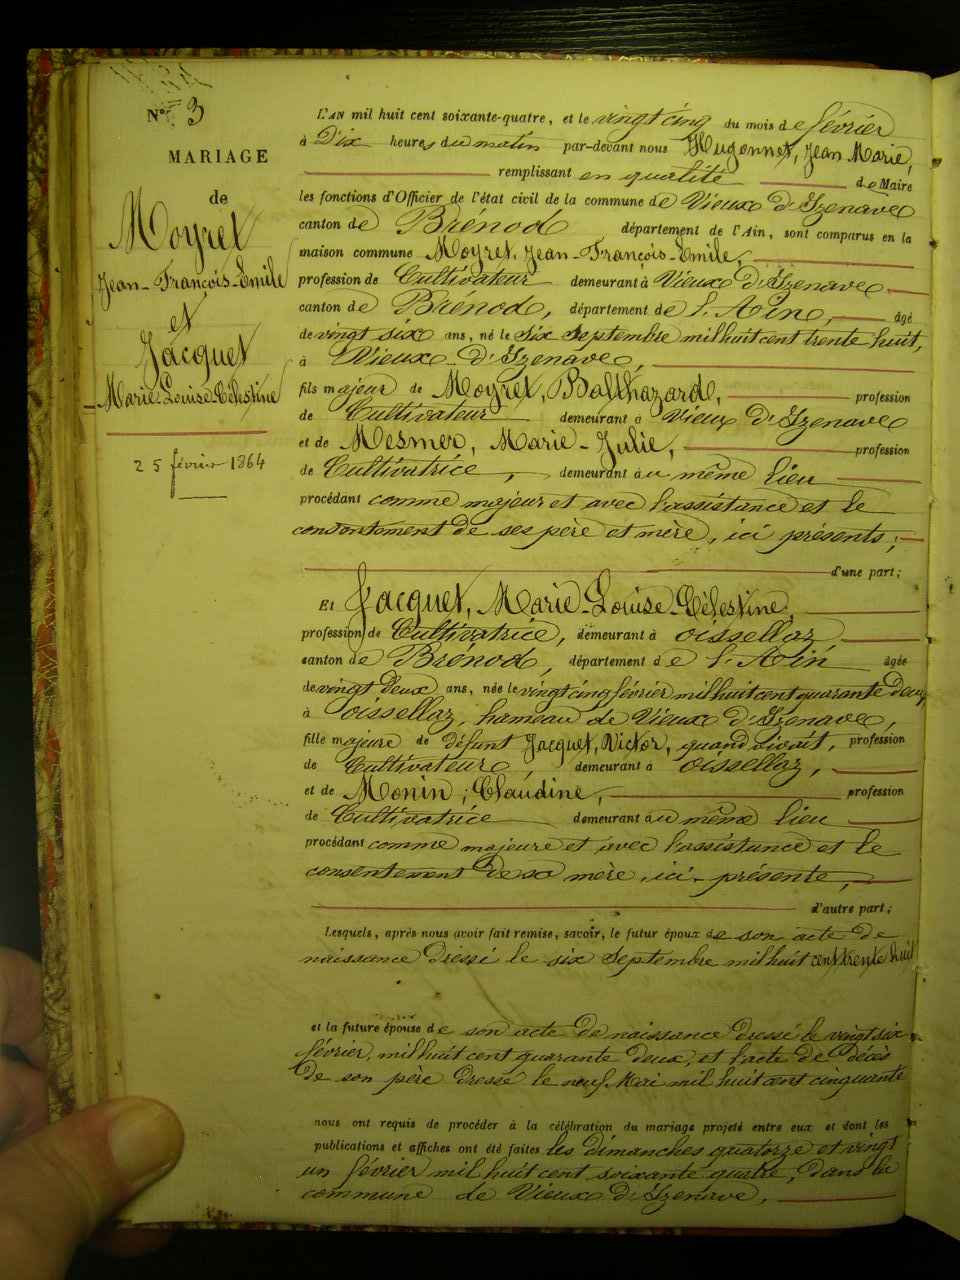 N° 3
MARIAGE
de
Moyret
Jean-François-Emile
et
Jacquet
Marie-Louise-Célestine
25 février 1864
L'AN mil huit cent soixante-quatre, et le vingt cinq du mois de février
à Dix heures du matin par-devant nous Hugonnet, Jean Marie,
remplissant en qualité de Maire
les fonctions d'Officier de l'état civil de la commune de Vieux d'Izenave
canton de Brénod département de l'Ain, sont comparus en la
maison commune Moyret, Jean-François-Emile,
profession de Cultivateur demeurant à Vieux d'Izenave
canton de Brénod, département de l'Ain, âgé
de vingt six ans, né le six Septembre mil huit cent trente huit,
à Vieux-d'Izenave,
fils majeur de Moyret, Balthazard, profession
de Cultivateur demeurant à Vieux d'Izenave
et de Mesmer, Marie-Julie, profession
de Cultivatrice, demeurant au même lieu
procédant comme majeur et avec l'assistance et le
consentement de ses père et mère, ici présents;
d'une part;
Et Jacquet, Marie-Louise-Célestine,
profession de Cultivatrice, demeurant à oissellaz
canton de Brénod, département de l'Ain âgée
de vingt deux ans, née le vingt cinq février mil huit cent quarante deux,
à oissellaz, hameau de Vieux d'Izenave,
fille majeure de défunt Jacquet, Victor, quand vivait, profession
de Cultivateur, demeurant à oissellaz,
et de Monin, Claudine, profession
de Cultivatrice demeurant au même lieu
procédant comme majeure et avec l'assistance et le
consentement de sa mère, ici présente,
d'autre part;
Lesquels, après nous avoir fait remise, savoir, le futur époux de son acte de
naissance dressé le six Septembre mil huit cent trente huit
et la future épouse de son acte de naissance dressé le vingt six
février, mil huit cent quarante deux, et l'acte de Décès
de son père dressé le neuf Mai mil huit cent cinquante
nous ont requis de procéder à la célébration du mariage projeté entre eux et dont les
publications et affiches ont été faites les dimanches quatorze et vingt
un février mil huit cent soixante quatre, dans la
commune de Vieux d'Izenave,